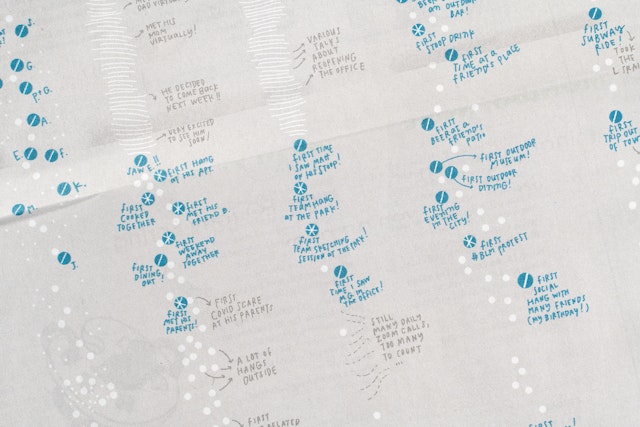 S.
G.
P+G.
A.
E.
F.
K.
M.
J.
DAD VIRTUALLY!
MET HIS
MOM
VIRTUALLY!
HE DECIDED
TO COME BACK
NEXT WEEK!!
VERY EXCITED
TO SEE HIM
SOON!
SAW E!!
FIRST HANG
AT HIS APT.
FIRST
COOKED
TOGETHER
FIRST
MET HIS
FRIEND D.
FIRST
WEEKEND
AWAY
TOGETHER
FIRST
DINING,
OUT!
FIRST
MET HIS
PARENTS!
FIRST
COVID SCARE
AT HIS PARENTS
A LOT OF
HANGS
OUTSIDE
FIRST
VARIOUS
TALKS
ABOUT
REOPENING
THE OFFICE
FIRST TIME
I SAW MATT
ON HIS STOOP!
FIRST
TEAM HONG
AT THE PARK!
FIRST
TEAM SKETCHING
SESSION AT THE PARK!
FIRST
TIME I SAW
M.G. IN
THE OFFICE!
STILL
MANY DAILY
ZOOM CALLS,
TOO MANY
TO COUNT
...
ON AN OUTDOOR
BAR!
FIRST
STOOP DRINK
FIRST
TIME AT A
FRIEND'S PLACE
FIRST
BEER AT A
FRIEND'S
PATIO
FIRST OUTDOOR
MUSEUM!
FIRST OUTDOOR
DINING!
FIRST
EVENING
IN THE
CITY!
FIRST
#BLM PROTEST
FIRST
SOCIAL
HANG WITH
MANY FRIENDS
(MY BIRTHDAY!)
FIRST
SUBWAY
RIDE!
TOOK
THE
FIRST
TRIP OUT
OF TOWN